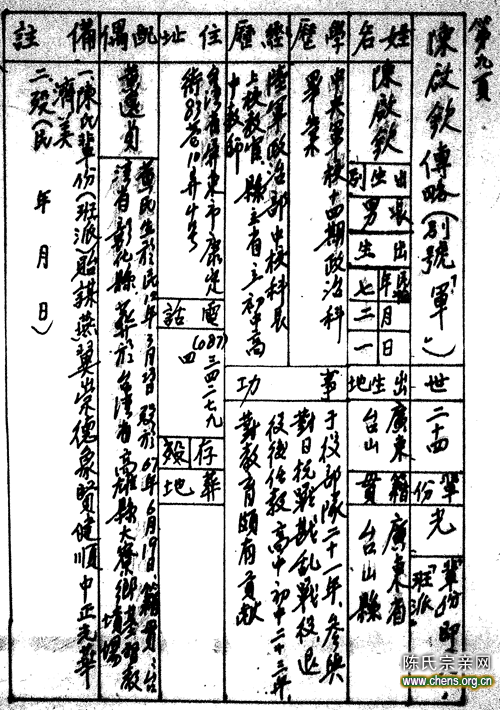 第九頁
陳啟欽傳略（別號「軍」）
世 二十四
輩份 光 「輩份」即「班派」
姓名 陳啟欽
出生別 男
出生 民 年 七 月 二 日 一
出生地 廣東台山
籍貫 廣東省台山縣
學歷 中央軍校十四期政治科畢業
經歷 陸軍政治部中校科長
上校教官縣立省立初中高
中教師
事功 于役部隊二十一年、參與
對日抗戰戡亂戰役退
役後任教高中初中二十三年
對教育頗有貢獻
住址 台灣省屏東市康定
街83巷10弄 號
電話 (087)三四二七九四
存歿 葬地
配偶 黃蓮貞 黃氏生於民 年3月 日歿於67年6月19日、籍貫：台
灣省彰化縣 葬於台灣省高雄縣大寮鄉基督教
墳場
備註 一、陳氏輩份（班派）貽謀燕翼崇德象賢健順中正光華
濟美
二、頭（民 年 月 日）
陈氏宗亲网
www.chens.org.cn